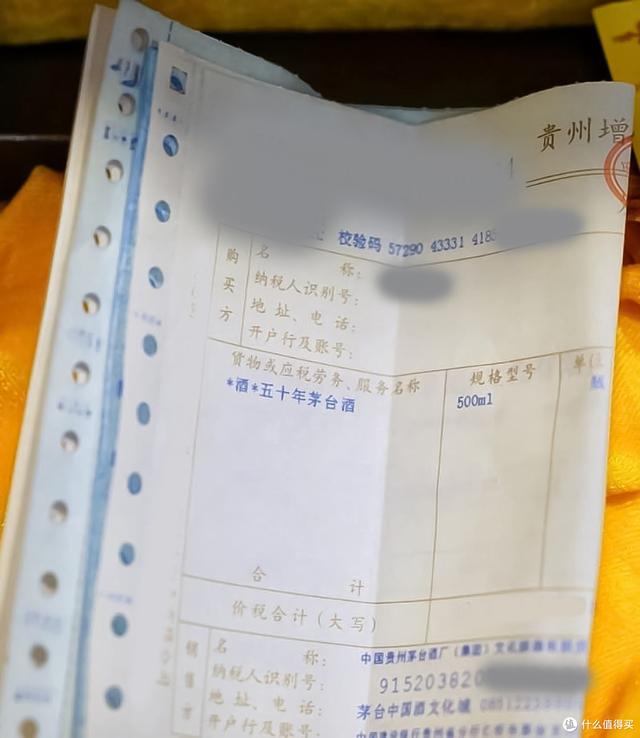 贵州增
校验码 57290 43331 418
购买方
名 称：
纳税人识别号：
地址、电话：
开户行及账号：
货物或应税劳务、服务名称 规格型号 单位
*酒*五十年茅台酒 500ml 瓶
合 计
价税合计（大写）
销售方
名 称： 中国贵州茅台酒厂（集团）文化旅游有限
纳税人识别号： 915203820
地址、电话： 茅台中国酒文化城
开户行及账号：
什么值得买